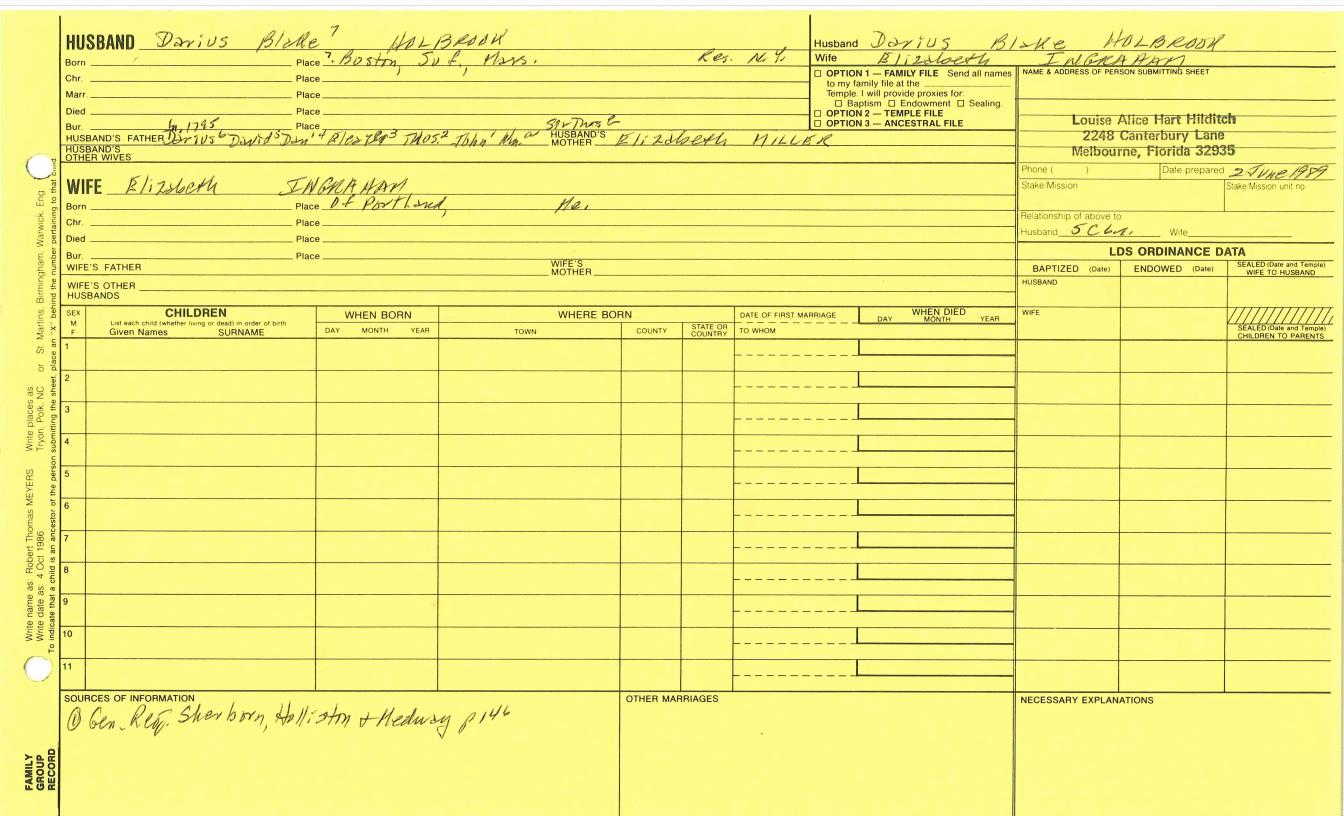 HUSBAND Darius Blake 7 HOLBROOK
Born Place ?. Boston, Suf., Mass. Res. N.Y.
Chr. Place
Marr Place
Died Place
Bur. Place
HUSBAND'S FATHER Darius 6 David 5 Dan'l 4 3 Thos. 2 John 1 HUSBAND'S MOTHER Elizabeth MILLER
1795
HUSBAND'S OTHER WIVES
WIFE Elizabeth INGRAHAM
Born Place Of Portland, Me.
Chr. Place
Died Place
Bur. Place
WIFE'S FATHER WIFE'S MOTHER
WIFE'S OTHER HUSBANDS
Husband Darius Blake HOLBROOK
Wife Elizabeth INGRAHAM
OPTION 1 — FAMILY FILE Send all names
to my family file at the
Temple. I will provide proxies for:
Baptism Endowment Sealing.
OPTION 2 — TEMPLE FILE
OPTION 3 — ANCESTRAL FILE
NAME & ADDRESS OF PERSON SUBMITTING SHEET
Louise Alice Hart Hilditch
2248 Canterbury Lane
Melbourne, Florida 32935
Phone ( ) Date prepared 2 June 1989
Stake Mission Stake Mission unit no
Relationship of above to
Husband 5C Wife
LDS ORDINANCE DATA
BAPTIZED (Date) ENDOWED (Date) SEALED (Date and Temple) WIFE TO HUSBAND
HUSBAND
WIFE
SEALED (Date and Temple) CHILDREN TO PARENTS
SEX M F
CHILDREN
List each child (whether living or dead) in order of birth
Given Names SURNAME
WHEN BORN
DAY MONTH YEAR
WHERE BORN
TOWN COUNTY STATE OR COUNTRY
DATE OF FIRST MARRIAGE
TO WHOM
WHEN DIED
DAY MONTH YEAR
1
2
3
4
5
6
7
8
9
10
11
SOURCES OF INFORMATION
① Gen. Reg. Sherborn, Holliston & Medway p 146
OTHER MARRIAGES
NECESSARY EXPLANATIONS
Write name as: Robert Thomas MEYERS Write places as: Tryon, Polk, NC or St. Martins, Birmingham, Warwick, Eng
Write date as: 4 Oct 1986
To indicate that a child is an ancestor of the person submitting the sheet, place an "X" behind the number pertaining to that child
FAMILY
GROUP
RECORD